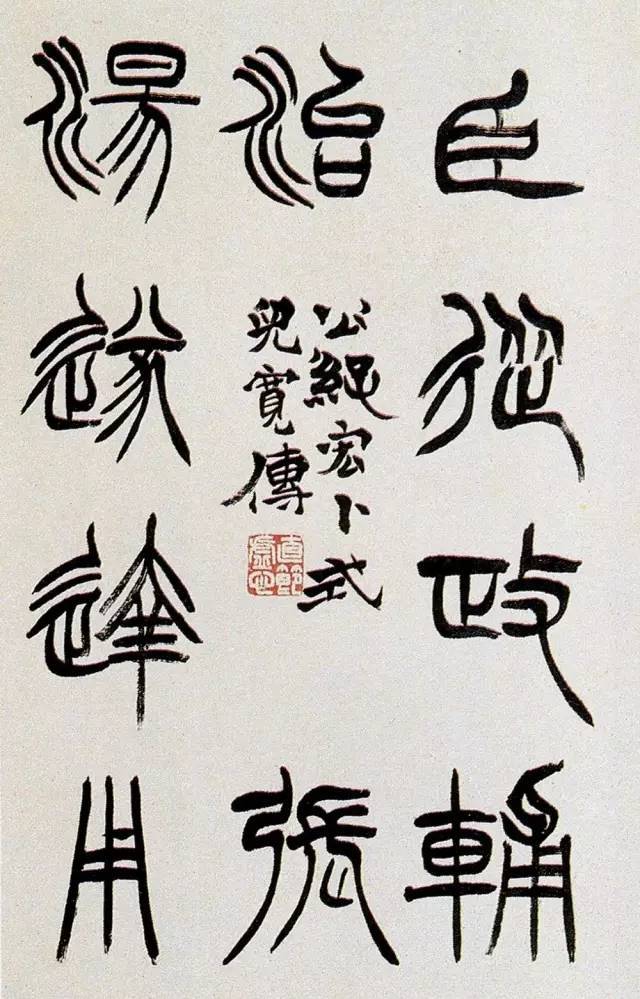 臣從政輔
治
公孫宏卜式
兒寬傳
直節
虛心
張
湯遂達用